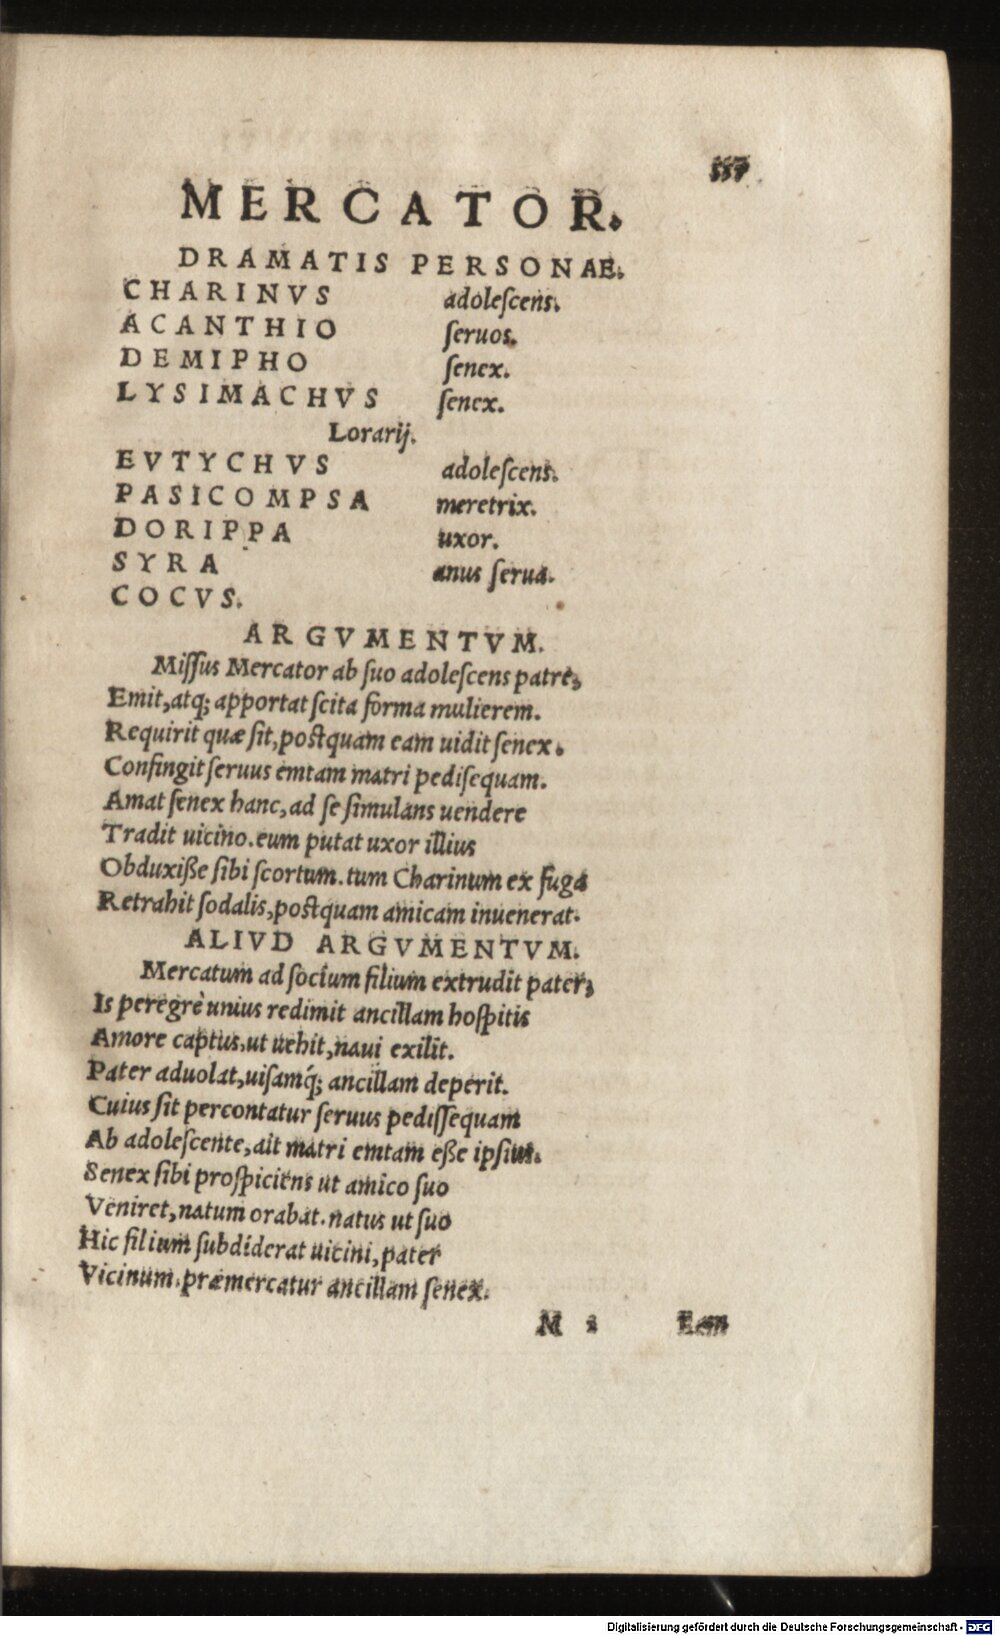 557
MERCATOR.
DRAMATIS PERSONAE.
CHARINVS adoleſcens.
ACANTHIO ſeruos.
DEMIPHO ſenex.
LYSIMACHVS ſenex.
Lorarij.
EVTYCHVS adoleſcens.
PASICOMPSA meretrix.
DORIPPA uxor.
SYRA anus ſerua.
COCVS.
ARGVMENTVM.
Miſſus Mercator ab ſuo adoleſcens patre,
Emit, atq; apportat ſcita forma mulierem.
Requirit quæ ſit, poſtquam eam uidit ſenex.
Confingit ſeruus emtam matri pediſequam.
Amat ſenex hanc, ad ſe ſimulans uendere
Tradit uicino. eum putat uxor illius
Obduxiſſe ſibi ſcortum. tum Charinum ex fuga
Retrahit ſodalis, poſtquam amicam inuenerat.
ALIVD ARGVMENTVM.
Mercatum ad ſocium filium extrudit pater,
Is peregrè unius redimit ancillam hoſpitis
Amore captus, ut uehit, naui exilit.
Pater aduolat, uiſamq́; ancillam deperit.
Cuius ſit percontatur ſeruus pediſſequam
Ab adoleſcente, ait matri emtam eſſe ipſius.
Senex ſibi proſpiciens ut amico ſuo
Veniret, natum orabat. natus ut ſuo
Hic filium ſubdiderat uicini, pater
Vicinum. præmercatur ancillam ſenex.
M 2 Eam
Digitalisierung gefördert durch die Deutsche Forschungsgemeinschaft - DFG